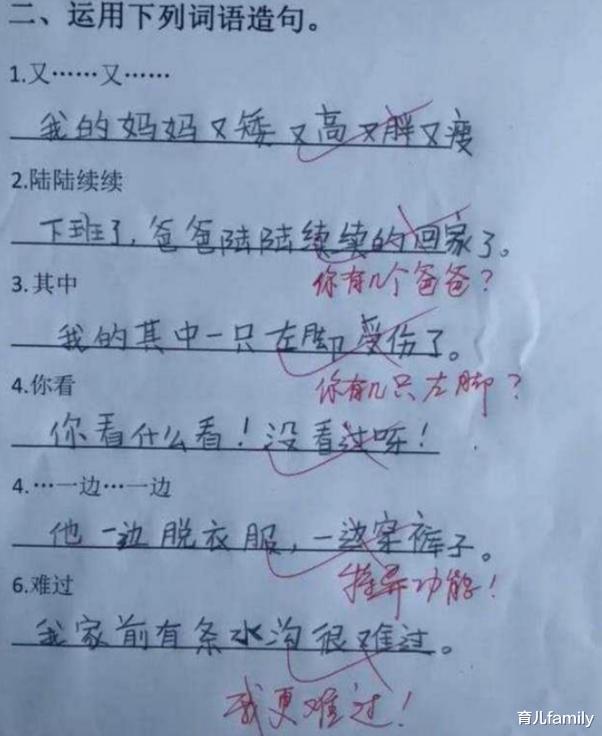 二、运用下列词语造句。
1.又……又……
我的妈妈又矮又高又胖又瘦
2.陆陆续续
下班了，爸爸陆陆续续的回家了。
你有几个爸爸？
3.其中
我的其中一只左脚受伤了。
你有几只左脚？
4.你看
你看什么看！没看过呀！
4.…一边…一边
他一边脱衣服，一边穿裤子。
特异功能！
6.难过
我家前有条水沟很难过。
我更难过！
育儿family